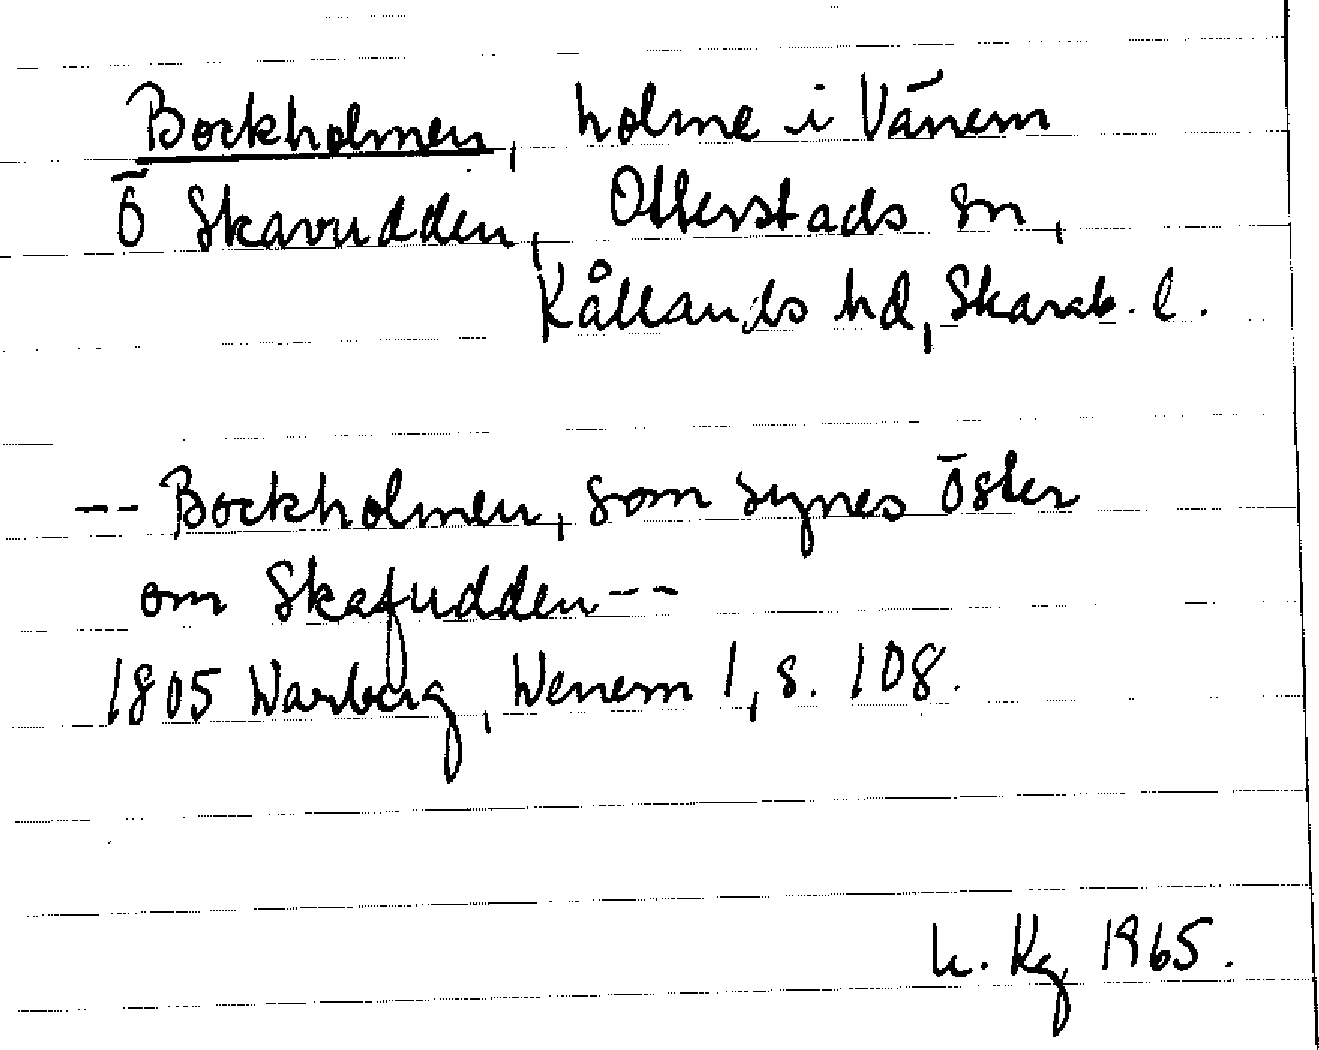 Bockholmen, holme i Vänern
Ö Skavudden, Otterstads sn,
Kållands hd, Skarab. l.
-- Bockholmen, som synes öster
om Skafudden --
1805 Warberg, Wenern 1, s. 108.
Kg 1965.